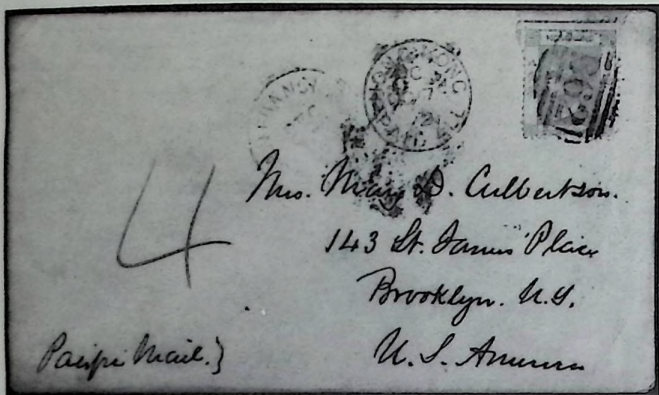 HONG KONG
PAID
B62
Mrs. Mary D. Culbertson.
143 St. James Place
Brooklyn. N.Y.
U.S. America
4
Pacific Mail.}